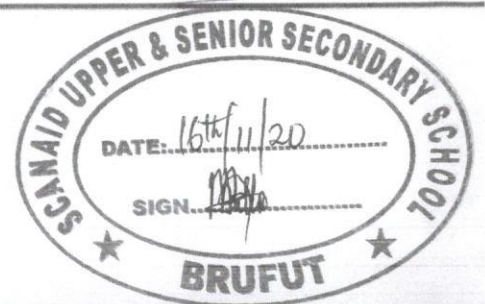 SCANAID UPPER & SENIOR SECONDARY SCHOOL
DATE:......16th/11/20......
SIGN......
BRUFUT